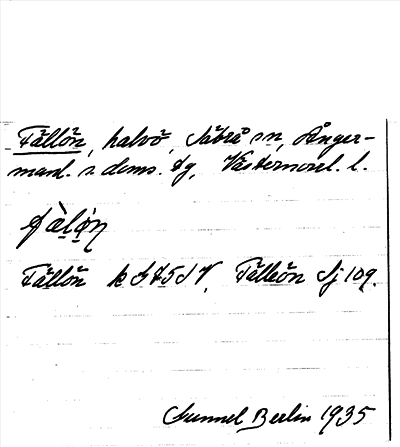 Fällön, halvö, Säbrå sn, Ånger-
manl. s. doms. dg, Västernorrl. l.
Fällön k J 45 S V, Fälleön Sj 109.
Gunnel Berlin 1935